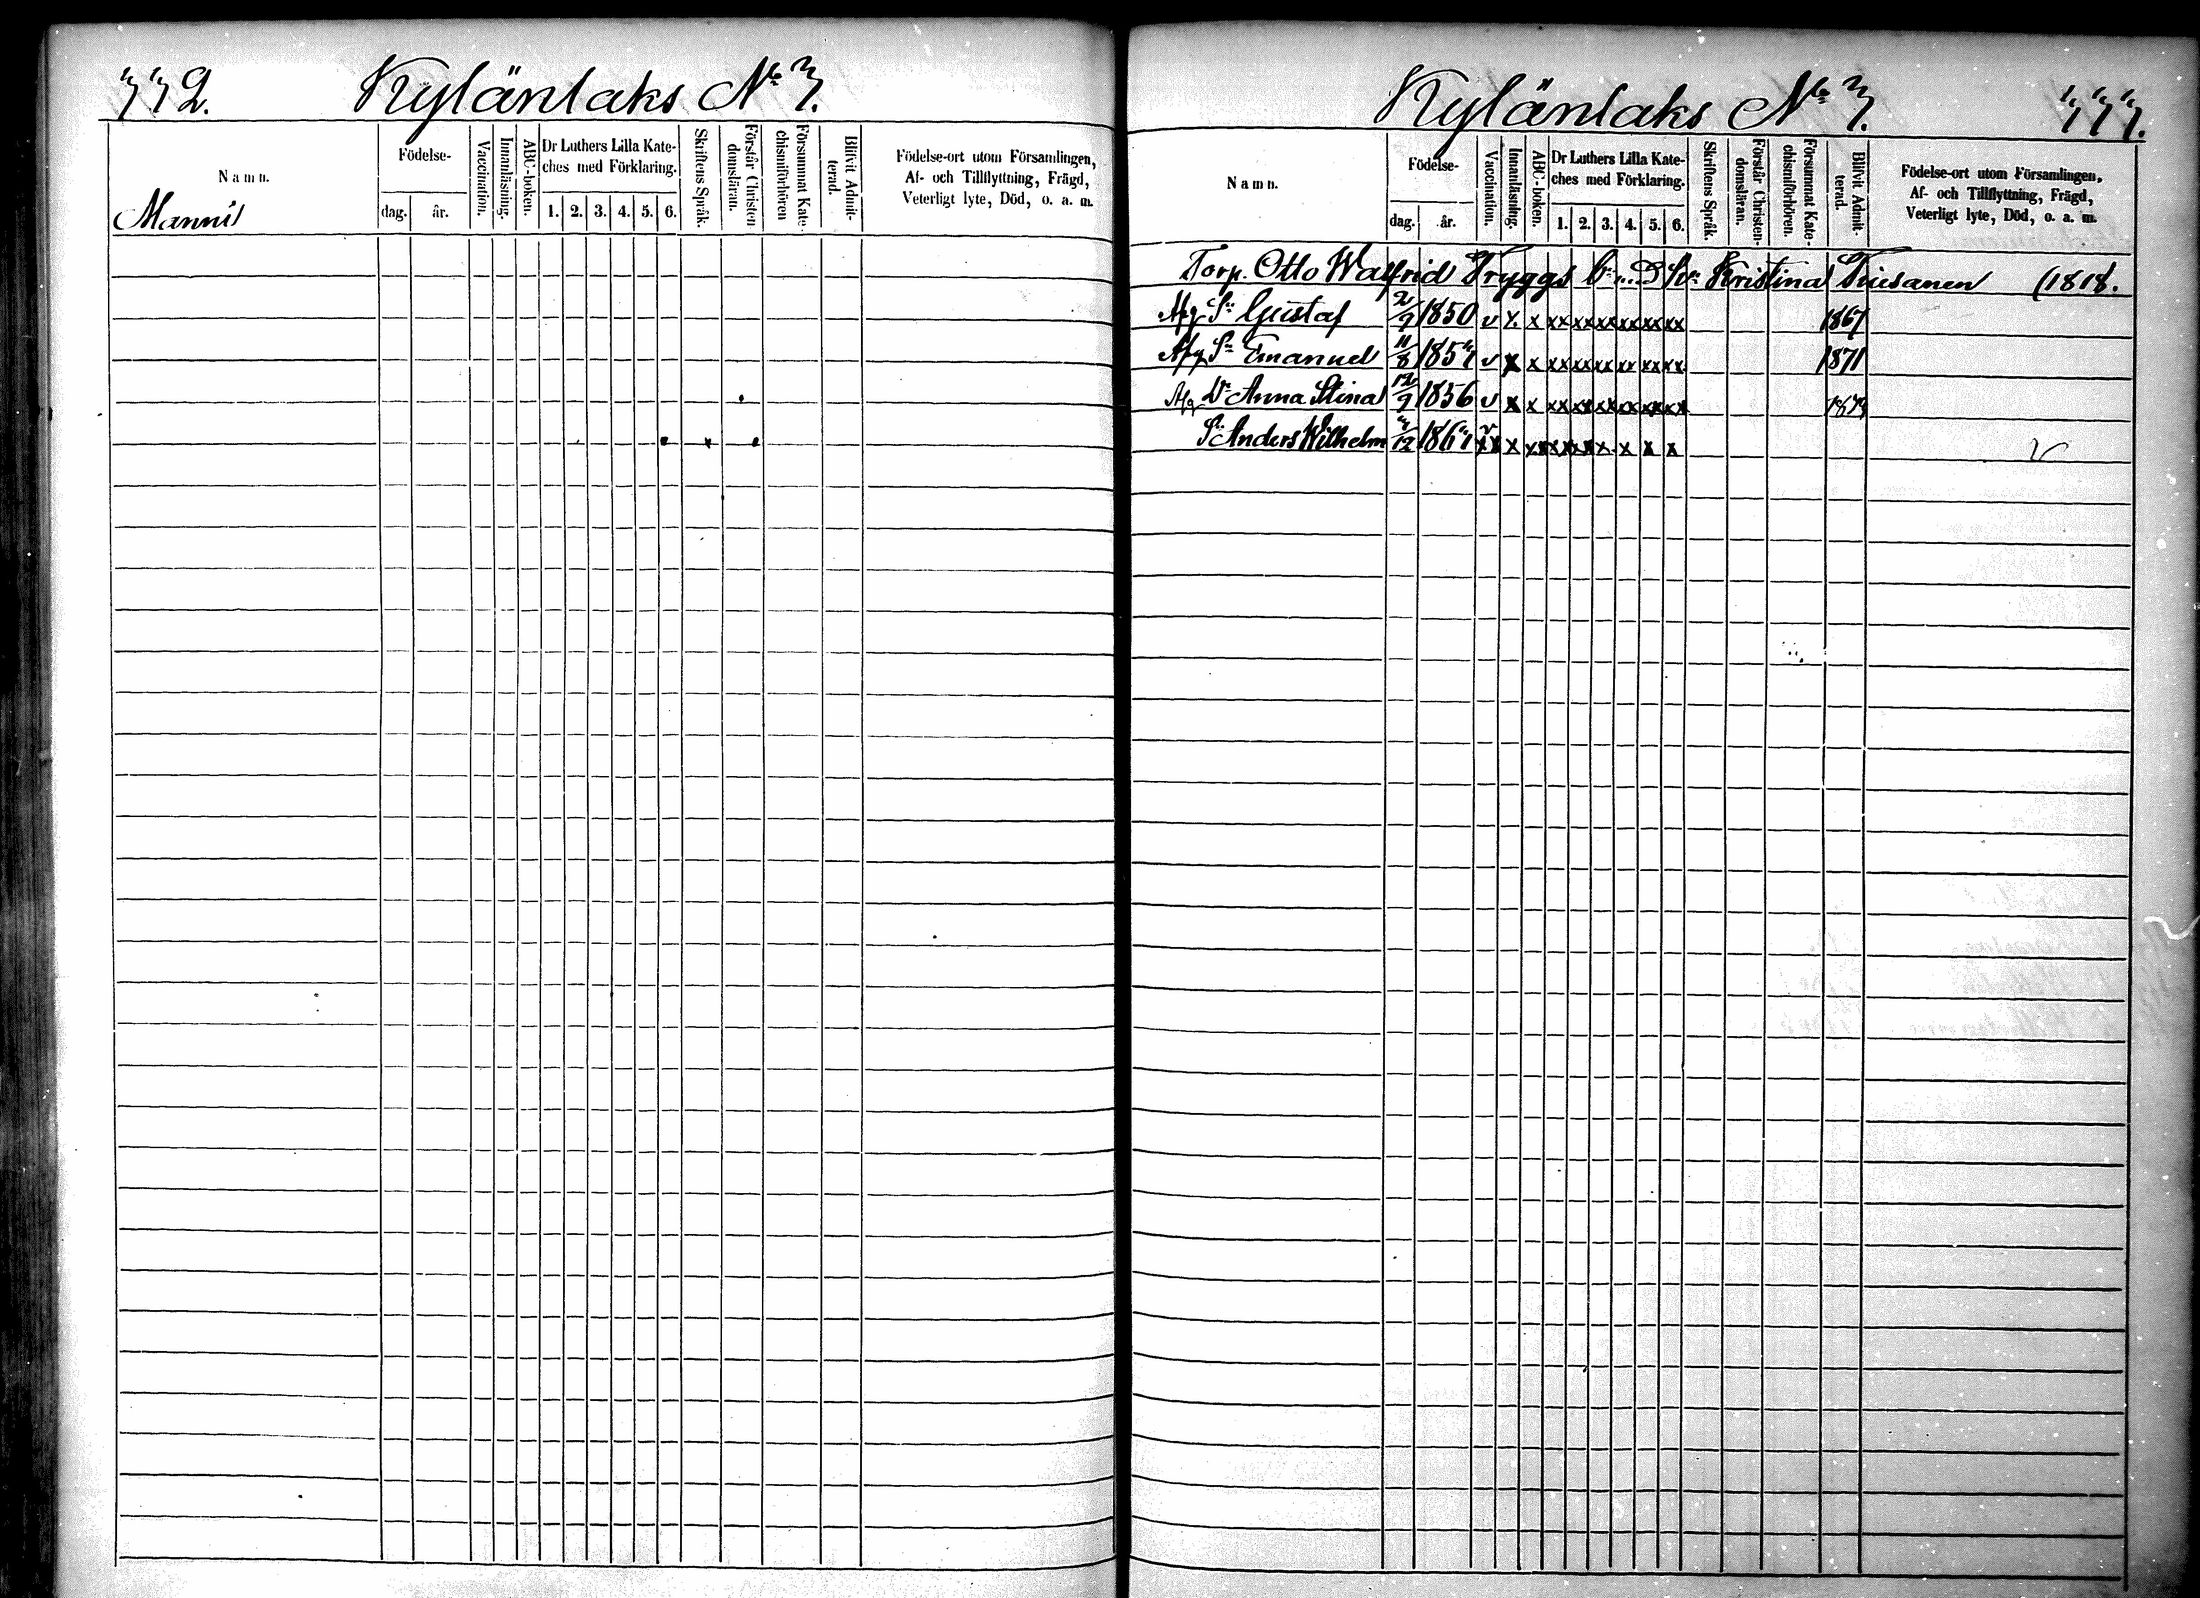 332.
Kylänlaks No 3.
Namn.
Födelse-
dag.
år.
Vaccination.
Innanläsning.
ABC-boken.
Dr Luthers Lilla Kate-
ches med Förklaring.
1. 2. 3. 4. 5. 6.
Skriftens Språk.
Förstår Christen
domsläran.
Försummat Kate-
chismiförhören
Blifvit Admit-
terad.
Födelse-ort utom Församlingen,
Af- och Tillflyttning, Frägd,
Veterligt lyte, Död, o. a. m.
Manni
Kylänlaks No 3.
333.
Namn.
Födelse-
dag.
år.
Vaccination.
Innanläsning.
ABC-boken.
Dr Luthers Lilla Kate-
ches med Förklaring.
1. 2. 3. 4. 5. 6.
Skriftens Språk.
Förstår Christen-
domsläran.
Försummat Kate-
chismiförhören.
Blifvit Admit-
terad.
Födelse-ort utom Församlingen,
Af- och Tillflyttning, Frägd,
Veterligt lyte, Död, o. a. m.
Torp. Otto Walfrid Tryggs Kristina (1818.
Afg Sn Gustaf 2/9 1850 v x x xx xx xx xx xx xx 1867
Afg Sn Emanuel 11/8 1853 v x x xx xx xx xx xx xx 1871
Afg Dr Anna Stina 12/9 1856 v x x xx xx xx xx xx xx 1873
Sn Anders Wilhelm 3/12 1863 v